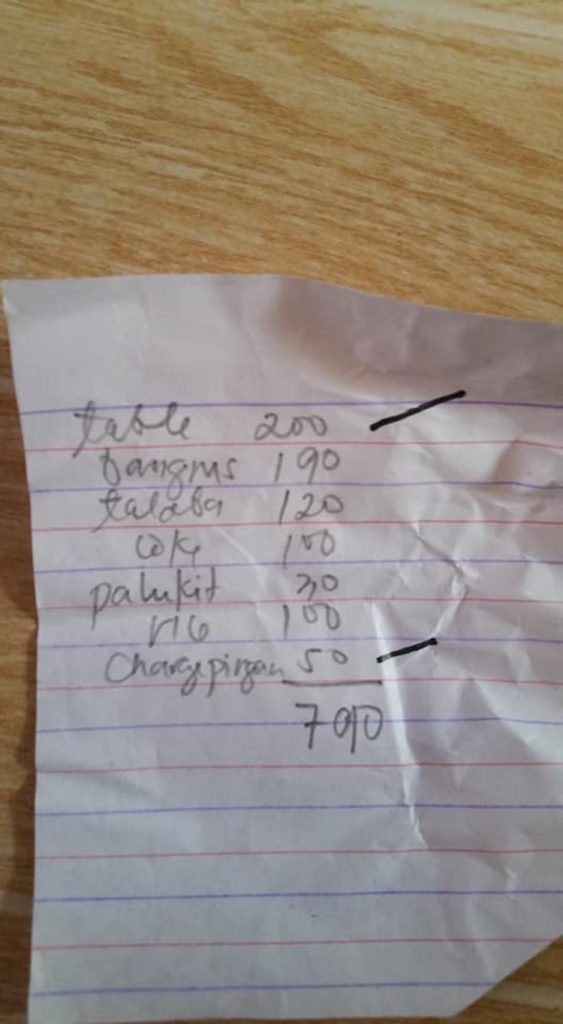 table 200
bangus 190
talaba 120
coke 100
palukit 30
rice 100
Charge pingan 50
790